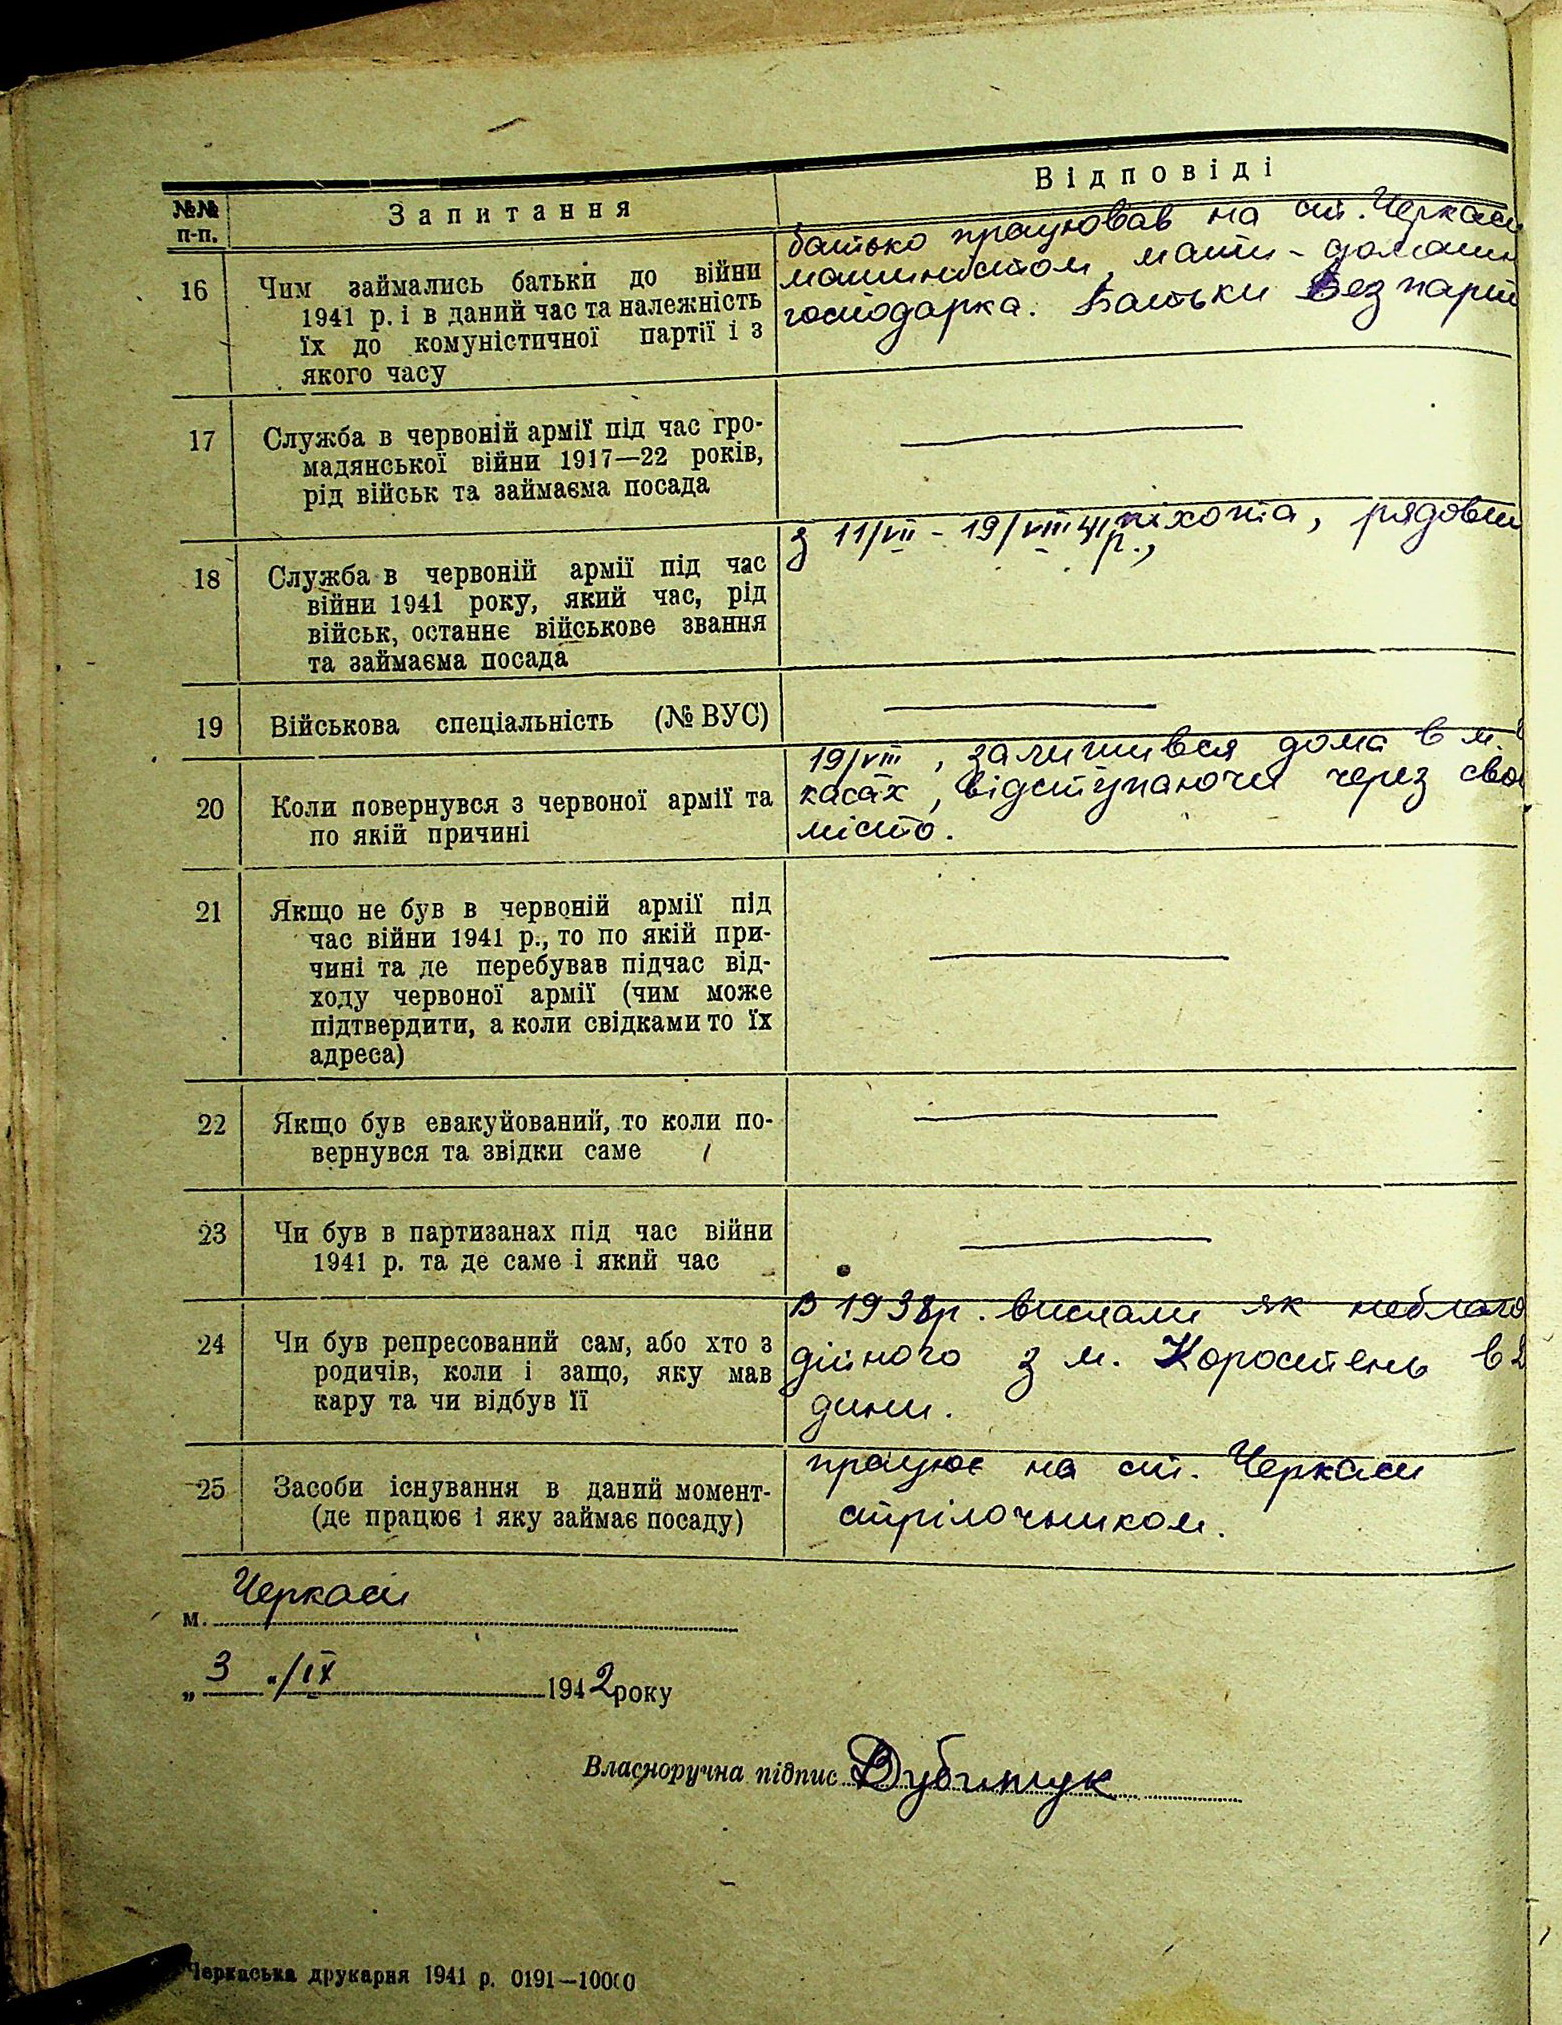 Відповіді
№№ Запитання
п-п.
16 Чим займались батьки до війни
1941 р. і в даний час та належність
їх до комуністичної партії і з
якого часу
батько працював на ст. Черкаси
машиністом, мати - домашн
господарка. Батьки Безпарті
17 Служба в червоній армії під час гро-
мадянської війни 1917—22 років,
рід військ та займаєма посада
18 Служба в червоній армії під час
війни 1941 року, який час, рід
військ, останнє військове звання
та займаєма посада
з 11/VII - 19/VIII 41 р., піхота, рядовий
19 Військова спеціальність (№ ВУС)
20 Коли повернувся з червоної армії та
по якій причині
19/VIII, залишився дома в м.
касах, відступаючи через сво
місто.
21 Якщо не був в червоній армії під
час війни 1941 р., то по якій при-
чині та де перебував підчас від-
ходу червоної армії (чим може
підтвердити, а коли свідками то їх
адреса)
22 Якщо був евакуйований, то коли по-
вернувся та звідки саме
23 Чи був в партизанах під час війни
1941 р. та де саме і який час
24 Чи був репресований сам, або хто з
родичів, коли і защо, яку мав
кару та чи відбув її
В 1938р. вислали як неблаго
дійного з м. Коростень в
дини.
25 Засоби існування в даний момент-
(де працює і яку займає посаду)
працює на ст. Черкаси
стрілочником.
м. Черкаси
„3“/IX 1942 року
Власноручна підпис
Черкаська друкарня 1941 р. 0191—10000